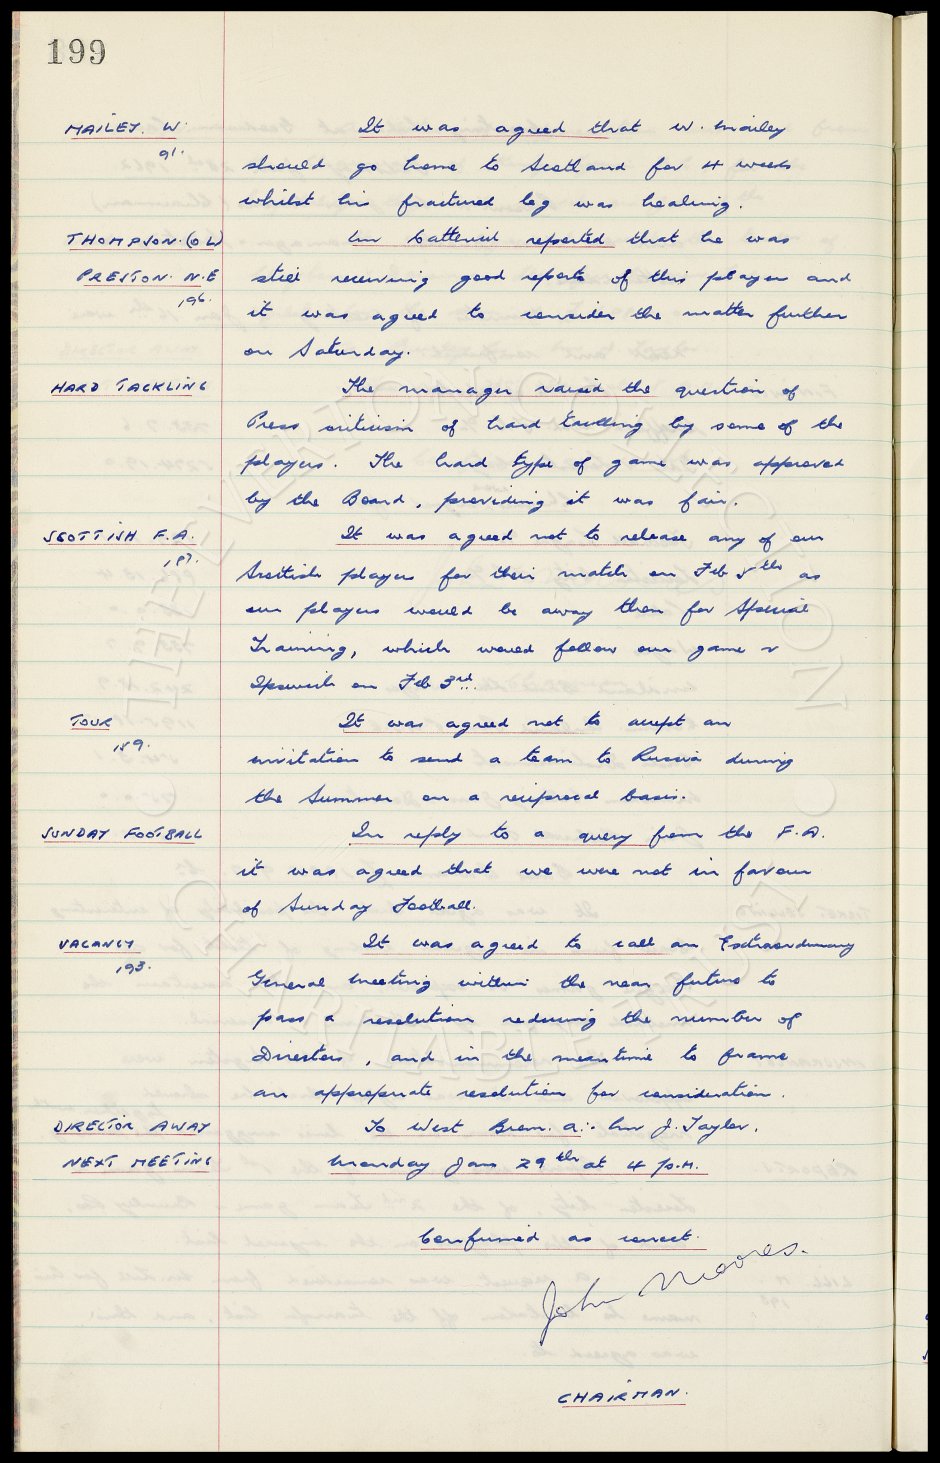 199
MAILEY. W. It was agreed that W. Mailey
91.
should go home to Scotland for 4 weeks
whilst his fractured leg was healing.
THOMPSON. (O L) Mr Catterick reported that he was
PRESTON. N.E still receiving good reports of this player and
196.
it was agreed to consider the matter further
on Saturday.
HARD TACKLING The manager raised the question of
Press criticism of hard tackling by some of the
players. The hard type of game was approved
by the Board, providing it was fair.
SCOTTISH F.A. It was agreed not to release any of our
187.
Scottish players for their match on Feb 5th as
our players would be away then for Special
Training, which would follow our game v
Ipswich on Feb 3rd.
TOUR It was agreed not to accept an
189.
invitation to send a team to Russia during
the Summer on a reciprocal basis.
SUNDAY FOOTBALL In reply to a query from the F.A.
it was agreed that we were not in favour
of Sunday Football.
VACANCY It was agreed to call an Extraordinary
193.
General Meeting within the near future to
pass a resolution reducing the number of
Directors, and in the meantime to frame
an appropriate resolution for consideration.
DIRECTOR AWAY To West Brom. A:- Mr J. Taylor.
NEXT MEETING Monday Jan 29th at 4 p.m.
Confirmed as correct.
John Moores.
CHAIRMAN.